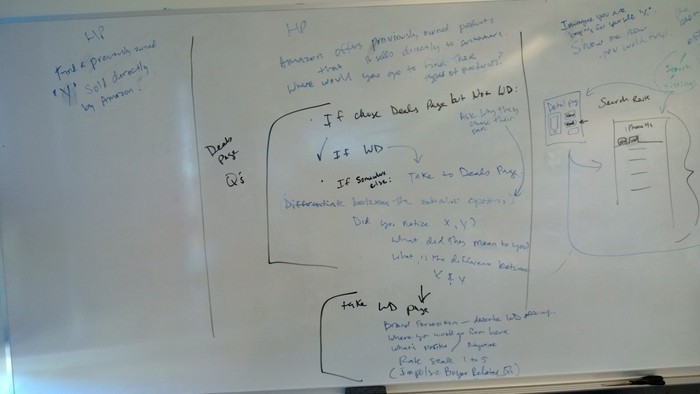 HP
Find a previously owned
"Y" sold directly
by Amazon?
HP
Amazon offers previously owned products
that it sells directly to customers.
Where would you go to find these
types of products?
Deals
Page
Q's
• If chose Deals Page but Not WD:
Ask why they
chose their
If WD
• If somewhere
else: Take to Deals Page
Differentiate between the various options,
Did you notice X, Y?
What did they mean to you?
What is the difference between
X & Y
take WD page
Brand Perception — describe WD
Where you would go from here
What's positive / negative
Rate scale 1 to 5
(Impulse Buyer Related
Imagine you are
Show me how
you would
Search
Detail Pg
Search Results
iPhone 4s